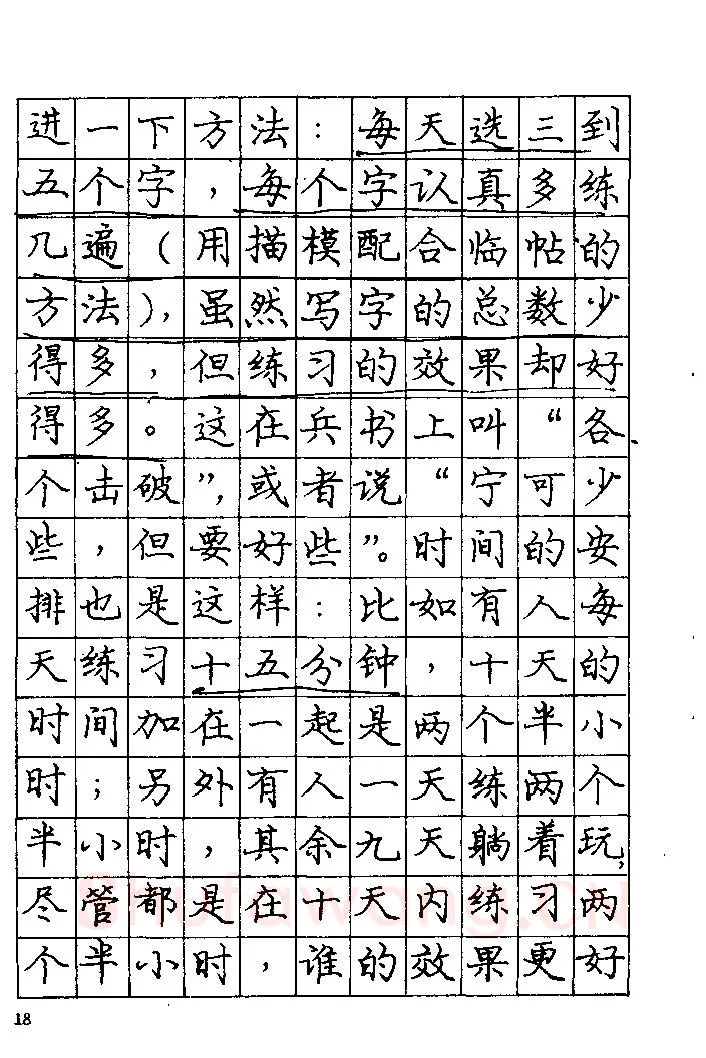 进一下方法：每天选三到
五个字，每个字认真多练
几遍（用描模配合临帖的
方法），虽然写字的总数少
得多，但练习的效果却好
得多。这在兵书上叫“各
个击破”，或者说“宁可少
些，但要好些”。时间的安
排也是这样：比如有人每
天练习十五分钟，十天的
时间加在一起是两个半小
时；另外有人一天练两个
半小时，其余九天躺着玩，
尽管都是在十天内练习两
个半小时，谁的效果更好
18
Shufawang.CN